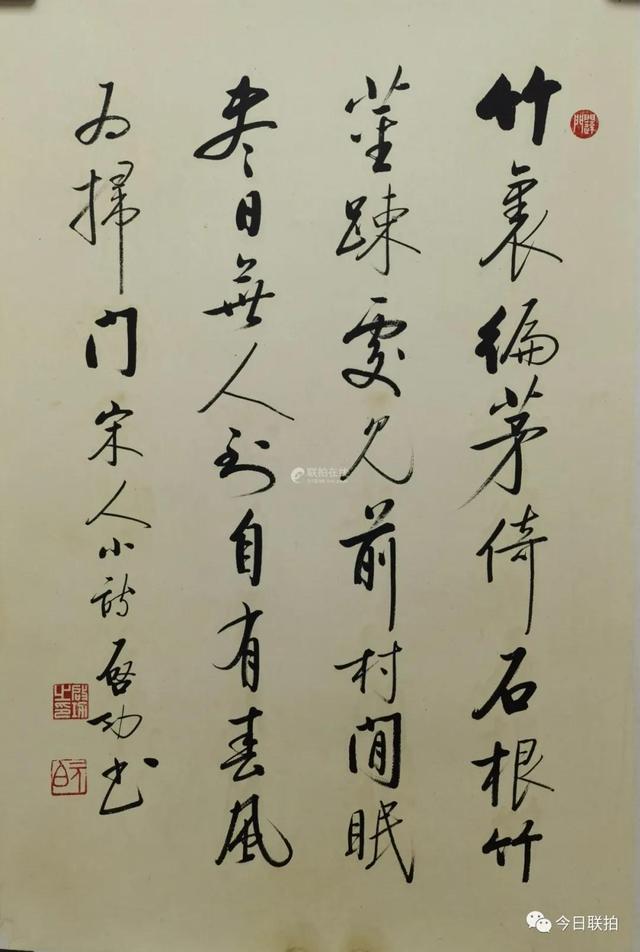 竹裏編茅倚石根竹
莖踈處見前村閒眠
盡日無人到自有春風
為掃門宋人小詩啓功書
元白
联拍在线
今日联拍